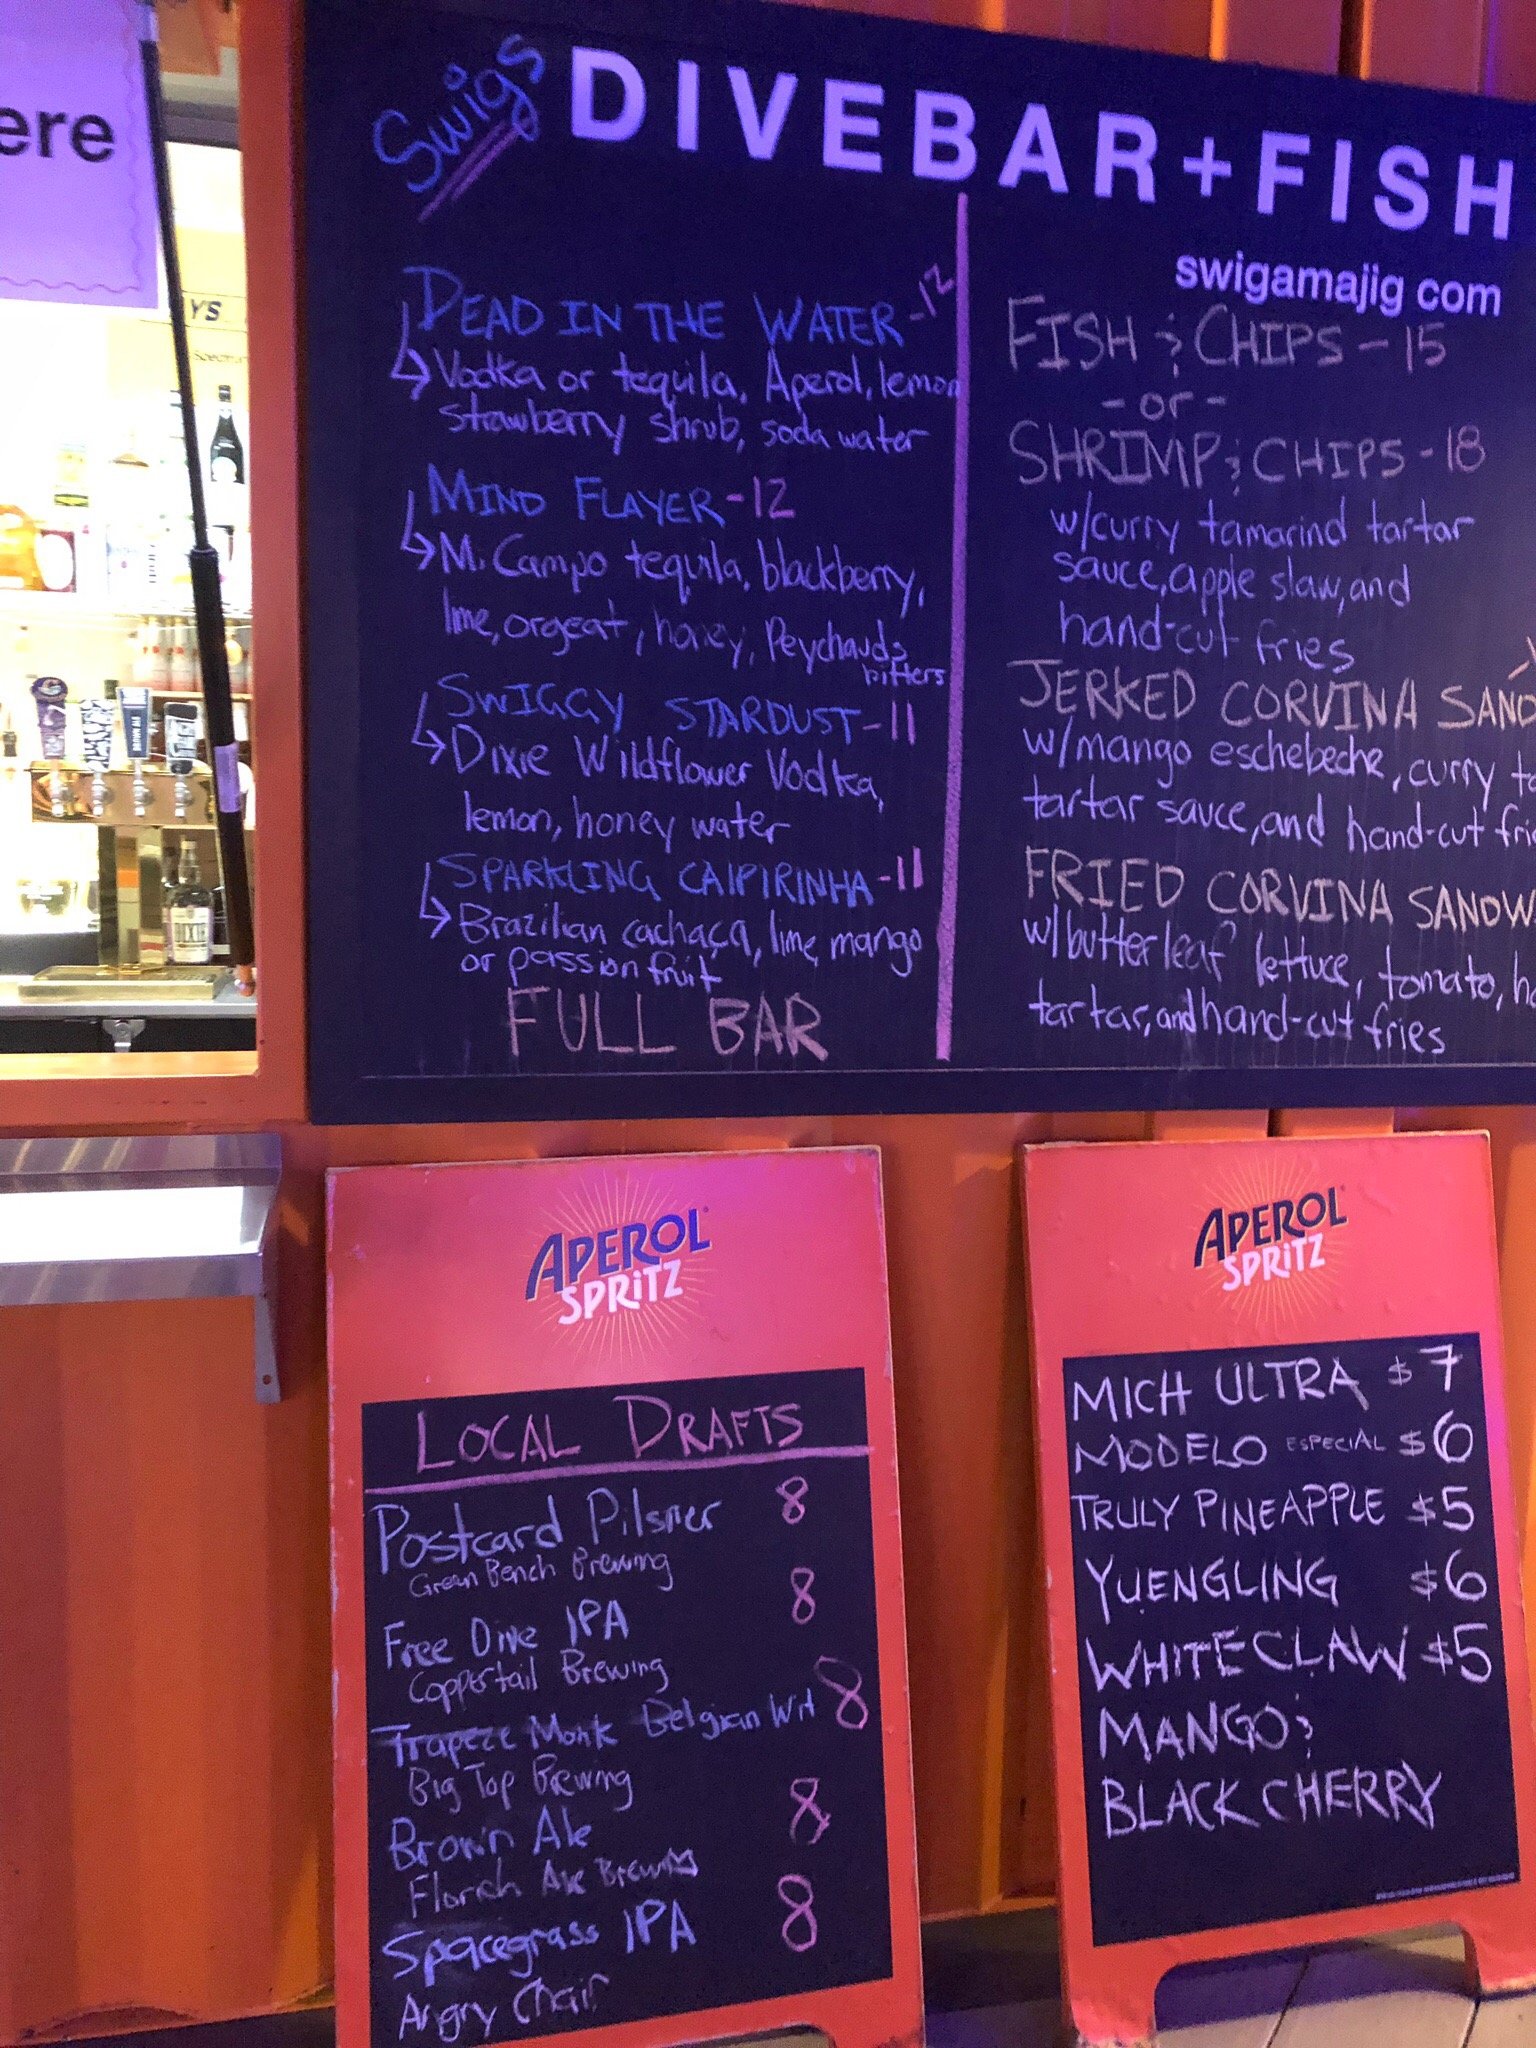 ere
YS
Swigs
DIVEBAR+FISH
swigamajig com
DEAD IN THE WATER -12
Vodka or tequila, Aperol, lemon
strawberry shrub, soda water
MIND FLAYER -12
Mi Campo tequila, blackberry,
lime, orgeat, honey, Peychauds
bitters
SWIGGY STARDUST -11
Dixie Wildflower Vodka,
lemon, honey water
SPARKLING CAIPIRINHA -11
Brazilian cachaça, lime, mango
or passion fruit
FULL BAR
FISH & CHIPS - 15
- or -
SHRIMP & CHIPS - 18
w/curry tamarind tartar
sauce, apple slaw, and
hand-cut fries
JERKED CORVINA SAND
w/mango eschebeche, curry ta
tartar sauce, and hand-cut fri
FRIED CORVINA SANDW
w/butterleaf lettuce, tomato, h
tartar, and hand-cut fries
DIXIE
APEROL
SPRITZ
LOCAL DRAFTS
Postcard Pilsner 8
Green Bench Brewing
Free Dive IPA 8
Coppertail Brewing
Trapeze Monk Belgian Wit 8
Big Top Brewing
Brown Ale 8
Ale Brewing
Spacegrass IPA 8
Angry Chair
APEROL
SPRITZ
MICH ULTRA $7
MODELO ESPECIAL $6
TRULY PINEAPPLE $5
YUENGLING $6
WHITE CLAW $5
MANGO &
BLACK CHERRY